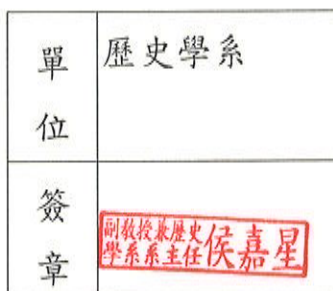 單位
歷史學系
簽章
副教授兼歷史
學系系主任
侯嘉星